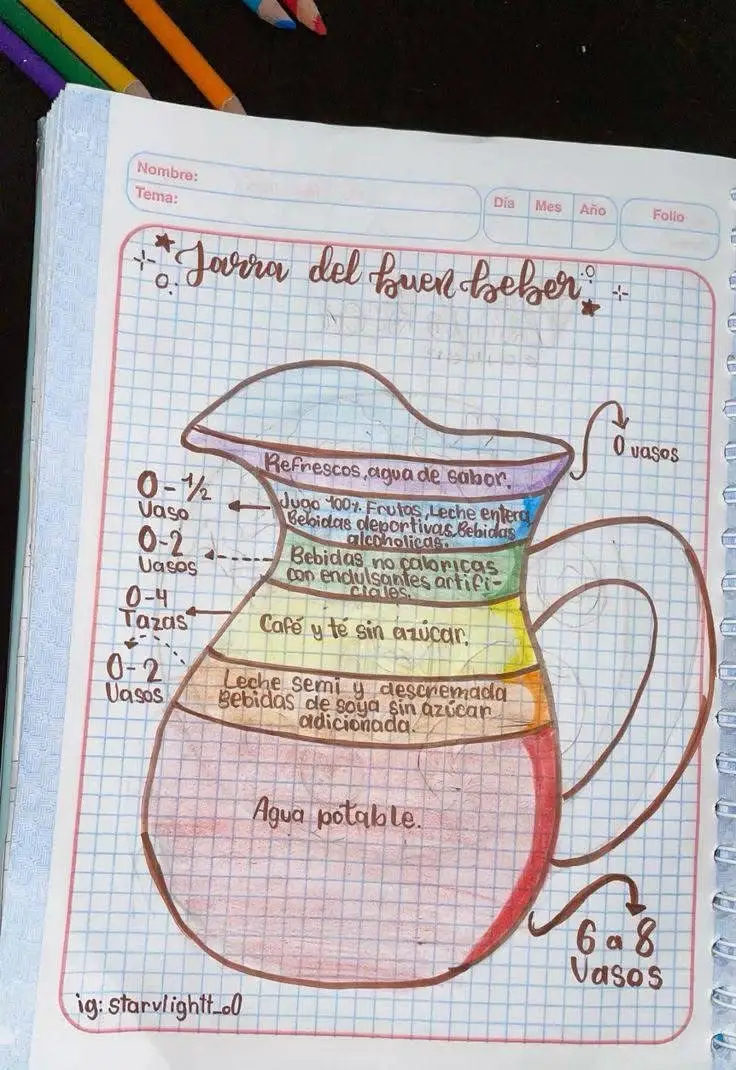 Nombre:
Tema:
Día Mes Año
Folio
Jarra del buen beber
Refrescos, agua de sabor.
0 vasos
Jugo 100% Frutos, Leche entera,
Bebidas deportivas, Bebidas
alcoholicas.
0-1/2
Vaso
Bebidas no caloricas
con endulsantes artifi-
ciales.
0-2
Vasos
Café y té sin azúcar.
0-4
Tazas
Leche semi y descremada
Bebidas de soya sin azúcar
adicionada.
0-2
Vasos
Agua potable.
6 a 8
Vasos
ig: starvlightt_o0